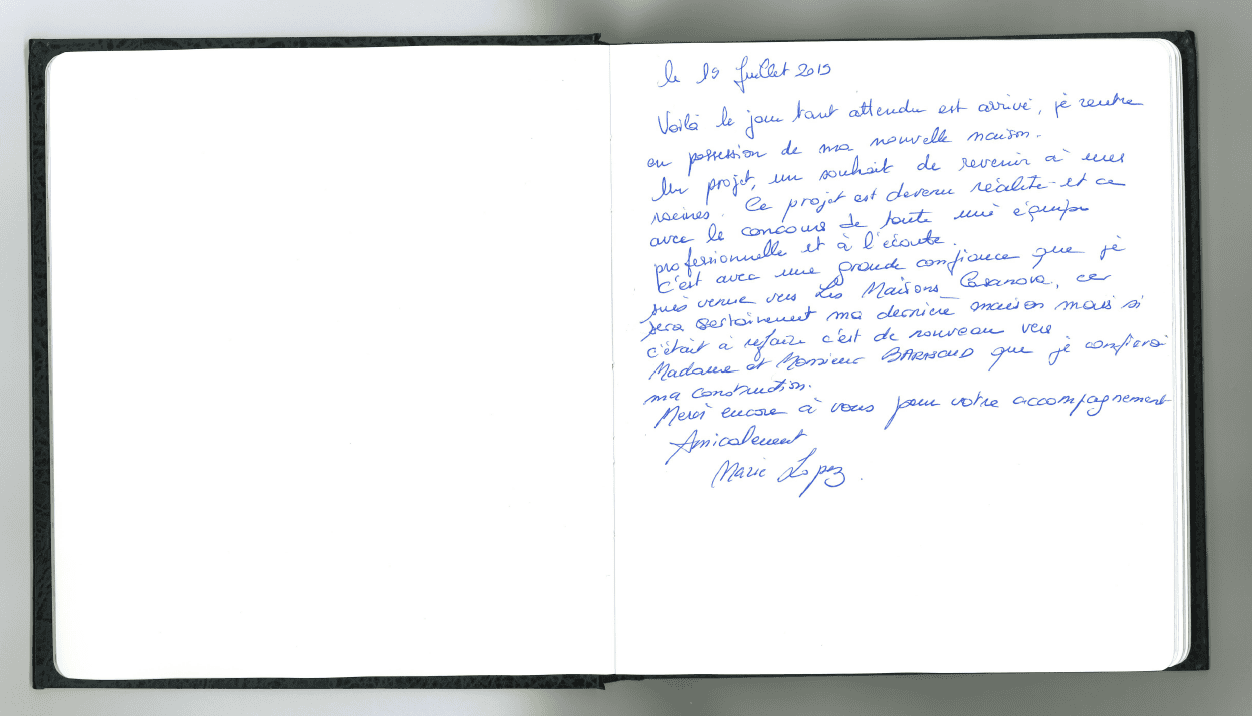 le 19 Juillet 2019
Voilà le jour tant attendu est arrivé, je rentre
en possession de ma nouvelle maison.
Un projet, un souhait de revenir à mes
racines. Ce projet est devenu réalité et ce
avec le concours de toute une équipe
professionnelle et à l'écoute.
C'est avec une grande confiance que je
suis venue vers Les Maisons Casanova, ce
sera certainement ma dernière maison mais si
c'était à refaire c'est de nouveau vers
Madame et Monsieur que je confierai
ma construction.
Merci encore à vous pour votre accompagnement
Amicalement
Marie Lopez.